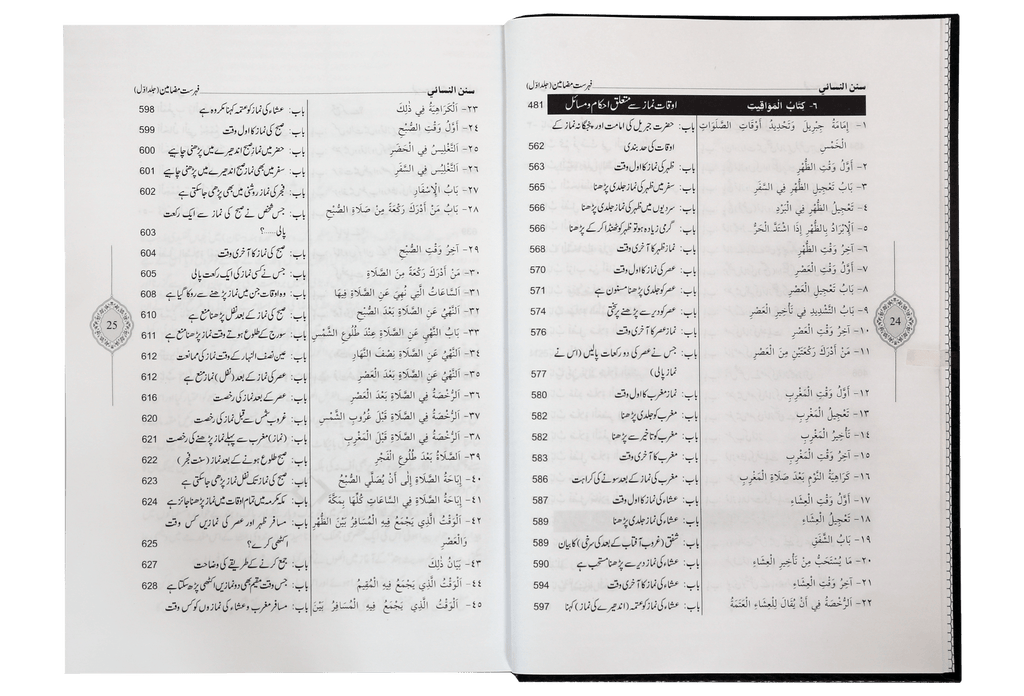 سنن النسائي فہرست مضامین (جلد اوّل)
٦- كتاب المواقيت اوقات نماز سے متعلق احکام و مسائل 481
١- إِمَامَةُ جِبْرِيلَ وَتَحْدِيدُ أَوْقَاتِ الصَّلَوَاتِ باب: حضرت جبریل کی امامت اور پنجگانہ نماز کے
الْخَمْسِ اوقات کی حد بندی 562
٢- أَوَّلُ وَقْتِ الظُّهْرِ باب: ظہر کا اول وقت 563
٣- بَابُ تَعْجِيلِ الظُّهْرِ فِي السَّفَرِ باب: سفر میں ظہر کی نماز جلدی پڑھنا 565
٤- تَعْجِيلُ الظُّهْرِ فِي الْبَرْدِ باب: سردیوں میں ظہر کی نماز جلدی پڑھنا 566
٥- اَلْإِبْرَادُ بِالظُّهْرِ إِذَا اشْتَدَّ الْحَرُّ باب: گرمی زیادہ ہو تو ظہر کو ٹھنڈا کر کے پڑھنا 566
٦- آخِرُ وَقْتِ الظُّهْرِ باب: نماز ظہر کا آخری وقت 568
٧- أَوَّلُ وَقْتِ الْعَصْرِ باب: عصر کی نماز کا اول وقت 570
٨- بَابُ تَعْجِيلِ الْعَصْرِ باب: عصر کو جلدی پڑھنا مسنون ہے 571
٩- بَابُ التَّشْدِيدِ فِي تَأْخِيرِ الْعَصْرِ باب: عصر کو دیر سے پڑھنے پر سختی 574
١٠- آخِرُ وَقْتِ الْعَصْرِ باب: نماز عصر کا آخری وقت 576
١١- مَنْ أَدْرَكَ رَكْعَتَيْنِ مِنَ الْعَصْرِ باب: جس نے عصر کی دو رکعات پالیں (اس نے
نماز پالی) 577
١٢- أَوَّلُ وَقْتِ الْمَغْرِبِ باب: نماز مغرب کا اول وقت 580
١٣- تَعْجِيلُ الْمَغْرِبِ باب: مغرب کو جلدی پڑھنا 582
١٤- تَأْخِيرُ الْمَغْرِبِ باب: مغرب کو تاخیر سے پڑھنا 582
١٥- آخِرُ وَقْتِ الْمَغْرِبِ باب: مغرب کا آخری وقت 583
١٦- كَرَاهِيَةُ النَّوْمِ بَعْدَ صَلَاةِ الْمَغْرِبِ باب: مغرب کی نماز کے بعد سونے کی کراہت 586
١٧- أَوَّلُ وَقْتِ الْعِشَاءِ باب: عشاء کی نماز کا اول وقت 587
١٨- تَعْجِيلُ الْعِشَاءِ باب: عشاء کی نماز جلدی پڑھنا 589
١٩- بَابُ الشَّفَقِ باب: شفق (غروب آفتاب کے بعد کی سرخی) کا بیان 589
٢٠- مَا يُسْتَحَبُّ مِنْ تَأْخِيرِ الْعِشَاءِ باب: عشاء کی نماز دیر سے پڑھنا مستحب ہے 590
٢١- آخِرُ وَقْتِ الْعِشَاءِ باب: عشاء کی نماز کا آخری وقت 594
٢٢- اَلرُّخْصَةُ فِي أَنْ يُقَالَ لِلْعِشَاءِ الْعَتَمَةُ باب: عشاء کی نماز کو عتمہ (اندھیرے کی نماز) کہنا 597
24
سنن النسائي فہرست مضامین (جلد اوّل)
٢٣- اَلْكَرَاهِيَةُ فِي ذٰلِكَ باب: عشاء کی نماز کو عتمہ کہنا مکروہ ہے 598
٢٤- أَوَّلُ وَقْتِ الصُّبْحِ باب: صبح کی نماز کا اول وقت 599
٢٥- اَلتَّغْلِيسُ فِي الْحَضَرِ باب: حضر میں نماز صبح اندھیرے میں پڑھنی چاہیے 600
٢٦- اَلتَّغْلِيسُ فِي السَّفَرِ باب: سفر میں بھی نماز صبح اندھیرے میں پڑھنی چاہیے 601
٢٧- بَابُ الْإِسْفَارِ باب: فجر کی نماز روشنی میں بھی پڑھی جا سکتی ہے 602
٢٨- بَابُ مَنْ أَدْرَكَ رَكْعَةً مِنْ صَلَاةِ الصُّبْحِ باب: جس شخص نے صبح کی نماز سے ایک رکعت
پالی.....؟ 603
٢٩- آخِرُ وَقْتِ الصُّبْحِ باب: صبح کی نماز کا آخری وقت 604
٣٠- مَنْ أَدْرَكَ رَكْعَةً مِنَ الصَّلَاةِ باب: جس نے کسی نماز کی ایک رکعت پالی 605
٣١- اَلسَّاعَاتُ الَّتِي نُهِيَ عَنِ الصَّلَاةِ فِيهَا باب: وہ اوقات جن میں نماز پڑھنے سے روکا گیا ہے 608
٣٢- اَلنَّهْيُ عَنِ الصَّلَاةِ بَعْدَ الصُّبْحِ باب: صبح کی نماز کے بعد نفل پڑھنا منع ہے 610
٣٣- بَابُ النَّهْيِ عَنِ الصَّلَاةِ عِنْدَ طُلُوعِ الشَّمْسِ باب: سورج کے طلوع ہوتے وقت نماز پڑھنا منع ہے 611
٣٤- اَلنَّهْيُ عَنِ الصَّلَاةِ نِصْفَ النَّهَارِ باب: عین نصف النہار کے وقت نماز کی ممانعت 612
٣٥- اَلنَّهْيُ عَنِ الصَّلَاةِ بَعْدَ الْعَصْرِ باب: عصر کی نماز کے بعد (نفل) نماز منع ہے 612
٣٦- اَلرُّخْصَةُ فِي الصَّلَاةِ بَعْدَ الْعَصْرِ باب: عصر کے بعد نماز کی رخصت 616
٣٧- اَلرُّخْصَةُ فِي الصَّلَاةِ قَبْلَ غُرُوبِ الشَّمْسِ باب: غروب شمس سے قبل نماز کی رخصت 620
٣٨- اَلرُّخْصَةُ فِي الصَّلَاةِ قَبْلَ الْمَغْرِبِ باب: (نماز) مغرب سے پہلے نماز پڑھنے کی رخصت 621
٣٩- اَلصَّلَاةُ بَعْدَ طُلُوعِ الْفَجْرِ باب: صبح طلوع ہونے کے بعد نماز (سنت فجر) 622
٤٠- إِبَاحَةُ الصَّلَاةِ إِلَى أَنْ يُصَلِّيَ الصُّبْحَ باب: صبح کی نماز تک نفل نماز پڑھی جا سکتی ہے 623
٤١- إِبَاحَةُ الصَّلَاةِ فِي السَّاعَاتِ كُلِّهَا بِمَكَّةَ باب: مکہ مکرمہ میں تمام اوقات میں نماز پڑھنا جائز ہے 624
٤٢- اَلْوَقْتُ الَّذِي يَجْمَعُ فِيهِ الْمُسَافِرُ بَيْنَ الظُّهْرِ باب: مسافر ظہر اور عصر کی نمازیں کس وقت
وَالْعَصْرِ اکٹھی کرے؟ 625
٤٣- بَيَانُ ذٰلِكَ باب: جمع کرنے کے طریقے کی وضاحت 627
٤٤- اَلْوَقْتُ الَّذِي يَجْمَعُ فِيهِ الْمُقِيمُ باب: جس وقت مقیم بھی دو نمازیں اکٹھی پڑھ سکتا ہے 628
٤٥- اَلْوَقْتُ الَّذِي يَجْمَعُ فِيهِ الْمُسَافِرُ بَيْنَ باب: مسافر مغرب و عشاء کی نمازوں کو کس وقت
25